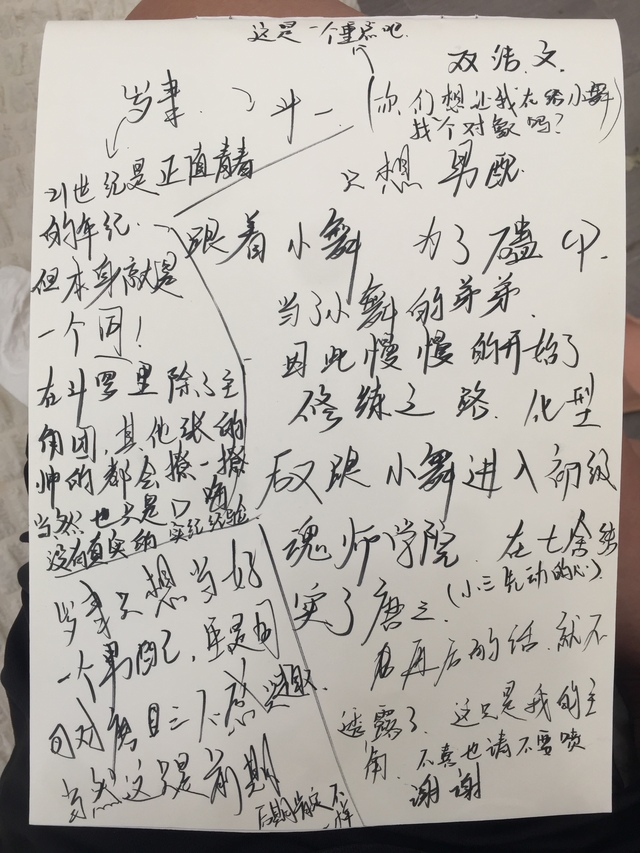 这是一个重点吧.
双洁文.
(你们想让我在给小舞
找个对象吗?)
岁聿.
斗一
21世纪是正值青春
的年纪.
但本身就是
一个同!
在斗罗里除了主
角团,其他张的
帅的都会撩一撩
当然也只是口嗨
没有真实的实纪经验.
只想
跟着小舞 为了
当了小舞的弟弟.
因此慢慢的开始了
修练之路. 化型
后又跟小舞进入初级
魂师学院. 在七舍结
实了唐三(小三先动的心)
在再后的话.就不
透露了. 这只是我的主
角.不喜也请不要喷
谢谢
岁聿只想当好
一个
对唐三不感兴趣.
当然这只是前期
后期肯定不一样